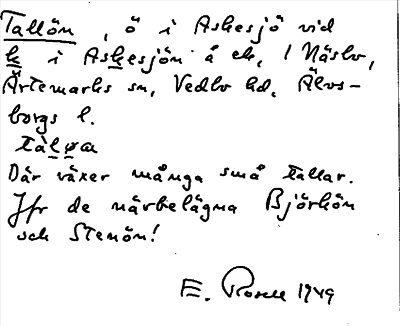 Tallön, ö i Askesjö vid
k i Askesjön å ek, 1 Näsbo,
Ärtemarks sn, Vedbo hd, Älvs-
borgs l.
tàløa
Där växer många små tallar.
Jfr de närbelägna Björkön
och Stenön!
E. Rosell 1949